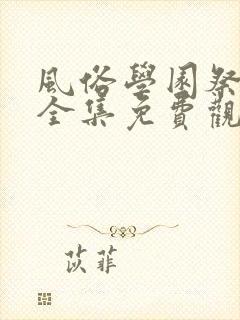 風俗學園祭
全集免費觀
苡菲